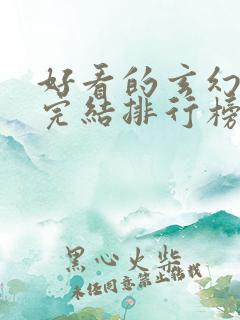 好看的玄幻
完结排行榜
黑心火柴
未经同意禁止转载